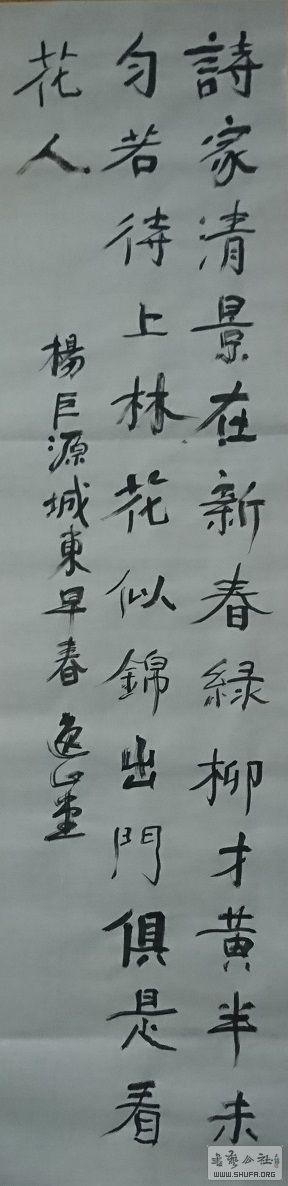 詩家清景在新春綠柳才黄半未
勻若待上林花似錦出門俱是看
花人
楊巨源城東早春 逸山堂
WWW.SHUFA.ORG